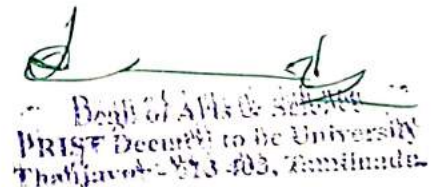 Dean of Arts & Science
PRIST Deemed to be University
Thanjavur - 613 403, Tamilnadu.